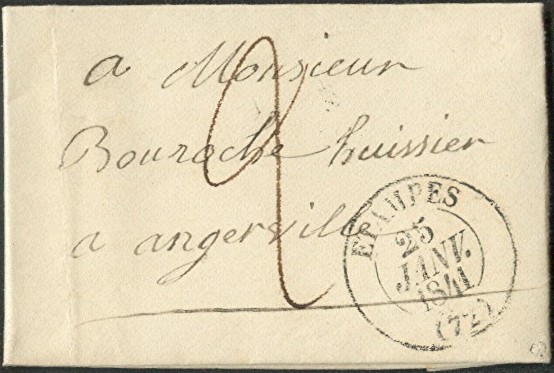 a Monsieur
Bouroche huissier
a angerville
2
ETAMPES
25
JANV.
1841
(72)